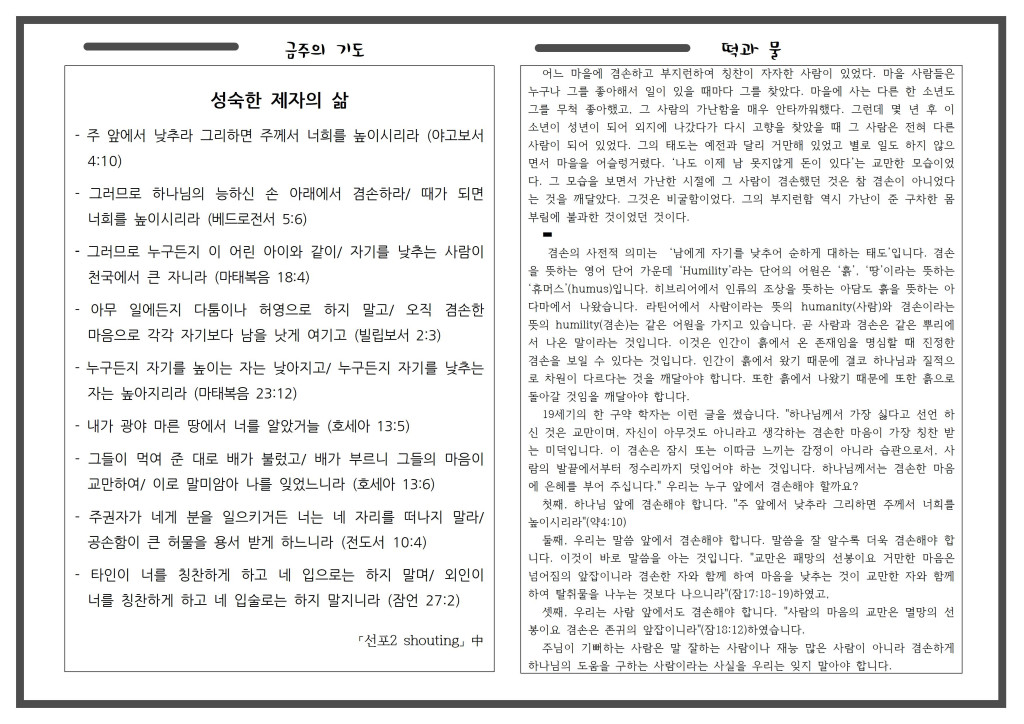 금주의 기도
성숙한 제자의 삶
- 주 앞에서 낮추라 그리하면 주께서 너희를 높이시리라 (야고보서
4:10)
- 그러므로 하나님의 능하신 손 아래에서 겸손하라/ 때가 되면
너희를 높이시리라 (베드로전서 5:6)
- 그러므로 누구든지 이 어린 아이와 같이/ 자기를 낮추는 사람이
천국에서 큰 자니라 (마태복음 18:4)
- 아무 일에든지 다툼이나 허영으로 하지 말고/ 오직 겸손한
마음으로 각각 자기보다 남을 낫게 여기고 (빌립보서 2:3)
- 누구든지 자기를 높이는 자는 낮아지고/ 누구든지 자기를 낮추는
자는 높아지리라 (마태복음 23:12)
- 내가 광야 마른 땅에서 너를 알았거늘 (호세아 13:5)
- 그들이 먹여 준 대로 배가 불렀고/ 배가 부르니 그들의 마음이
교만하여/ 이로 말미암아 나를 잊었느니라 (호세아 13:6)
- 주권자가 네게 분을 일으키거든 너는 네 자리를 떠나지 말라/
공손함이 큰 허물을 용서 받게 하느니라 (전도서 10:4)
- 타인이 너를 칭찬하게 하고 네 입으로는 하지 말며/ 외인이
너를 칭찬하게 하고 네 입술로는 하지 말지니라 (잠언 27:2)
「선포2 shouting」中
떡과 물
어느 마을에 겸손하고 부지런하여 칭찬이 자자한 사람이 있었다. 마을 사람들은
누구나 그를 좋아해서 일이 있을 때마다 그를 찾았다. 마을에 사는 다른 한 소년도
그를 무척 좋아했고, 그 사람의 가난함을 매우 안타까워했다. 그런데 몇 년 후 이
소년이 성년이 되어 외지에 나갔다가 다시 고향을 찾았을 때 그 사람은 전혀 다른
사람이 되어 있었다. 그의 태도는 예전과 달리 거만해 있었고 별로 일도 하지 않으
면서 마을을 어슬렁거렸다. '나도 이제 남 못지않게 돈이 있다'는 교만한 모습이었
다. 그 모습을 보면서 가난한 시절에 그 사람이 겸손했던 것은 참 겸손이 아니었다
는 것을 깨달았다. 그것은 비굴함이었다. 그의 부지런함 역시 가난이 준 구차한 몸
부림에 불과한 것이었던 것이다.
겸손의 사전적 의미는 '남에게 자기를 낮추어 순하게 대하는 태도'입니다. 겸손
을 뜻하는 영어 단어 가운데 'Humility'라는 단어의 어원은 '흙', '땅'이라는 뜻하는
'휴머스'(humus)입니다. 히브리어에서 인류의 조상을 뜻하는 아담도 흙을 뜻하는 아
다마에서 나왔습니다. 라틴어에서 사람이라는 뜻의 humanity(사람)와 겸손이라는
뜻의 humility(겸손)는 같은 어원을 가지고 있습니다. 곧 사람과 겸손은 같은 뿌리에
서 나온 말이라는 것입니다. 이것은 인간이 흙에서 온 존재임을 명심할 때 진정한
겸손을 보일 수 있다는 것입니다. 인간이 흙에서 왔기 때문에 결코 하나님과 질적으
로 차원이 다르다는 것을 깨달아야 합니다. 또한 흙에서 나왔기 때문에 또한 흙으로
돌아갈 것임을 깨달아야 합니다.
19세기의 한 구약 학자는 이런 글을 썼습니다. "하나님께서 가장 싫다고 선언 하
신 것은 교만이며, 자신이 아무것도 아니라고 생각하는 겸손한 마음이 가장 칭찬 받
는 미덕입니다. 이 겸손은 잠시 또는 이따금 느끼는 감정이 아니라 습관으로서, 사
람의 발끝에서부터 정수리까지 덧입어야 하는 것입니다. 하나님께서는 겸손한 마음
에 은혜를 부어 주십니다." 우리는 누구 앞에서 겸손해야 할까요?
첫째, 하나님 앞에 겸손해야 합니다. "주 앞에서 낮추라 그리하면 주께서 너희를
높이시리라"(약4:10)
둘째, 우리는 말씀 앞에서 겸손해야 합니다. 말씀을 잘 알수록 더욱 겸손해야 합
니다. 이것이 바로 말씀을 아는 것입니다. "교만은 패망의 선봉이요 거만한 마음은
넘어짐의 앞잡이니라 겸손한 자와 함께 하여 마음을 낮추는 것이 교만한 자와 함께
하여 탈취물을 나누는 것보다 나으니라"(잠17:18-19)하였고,
셋째, 우리는 사람 앞에서도 겸손해야 합니다. "사람의 마음의 교만은 멸망의 선
봉이요 겸손은 존귀의 앞잡이니라"(잠18:12)하였습니다.
주님이 기뻐하는 사람은 말 잘하는 사람이나 재능 많은 사람이 아니라 겸손하게
하나님의 도움을 구하는 사람이라는 사실을 우리는 잊지 말아야 합니다.